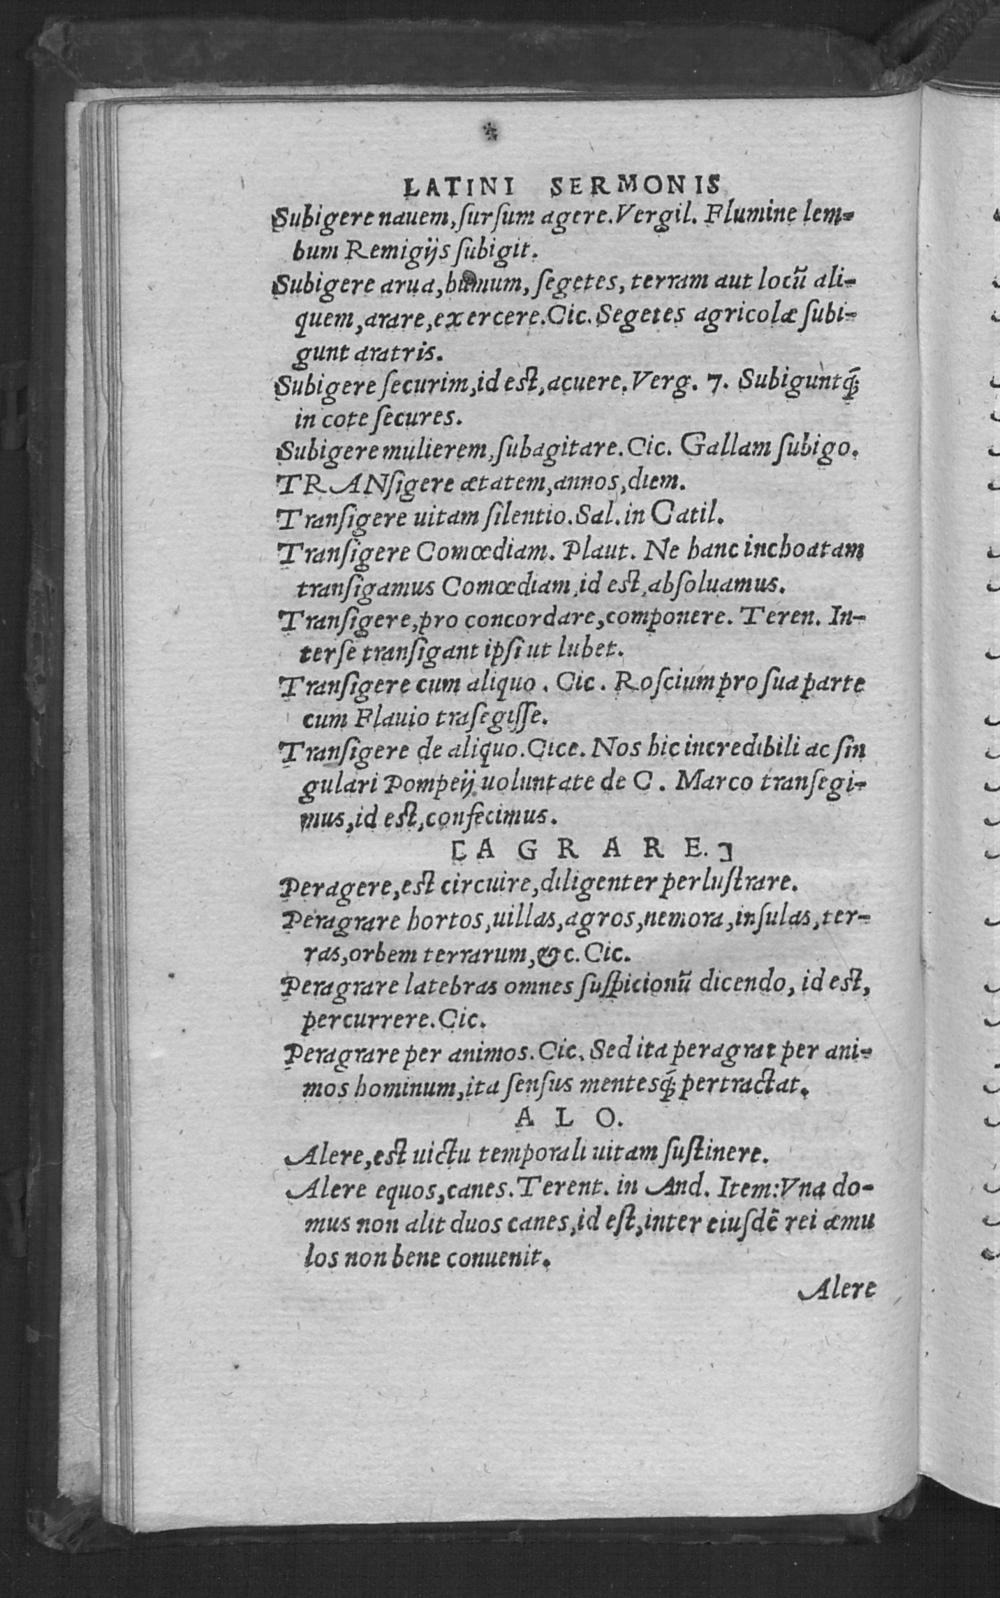 LATINI SERMONIS
Subigere nauem, ſurſum agere. Vergil. Flumine lem-
bum Remigijs ſubigit.
Subigere arua, humum, ſegetes, terram aut locũ ali-
quem, arare, exercere. Cic. Segetes agricolæ ſubi-
gunt aratris.
Subigere ſecurim, id eſt, acuere. Verg. 7. Subiguntq́;
in cote ſecures.
Subigere mulierem, ſubagitare. Cic. Gallam ſubigo.
TRANſigere ætatem, annos, diem.
Tranſigere uitam ſilentio. Sal. in Catil.
Tranſigere Comœdiam. Plaut. Ne hanc inchoatam
tranſigamus Comœdiam, id eſt, abſoluamus.
Tranſigere, pro concordare, componere. Teren. In-
terſe tranſigant ipſi ut lubet.
Tranſigere cum aliquo. Cic. Roſcium pro ſua parte
cum Flauio traſegiſſe.
Tranſigere de aliquo. Cice. Nos hic incredibili ac ſin
gulari Pompeij uoluntate de C. Marco tranſegi-
mus, id eſt, confecimus.
[AGRARE.]
Peragere, eſt circuire, diligenter perluſtrare.
Peragrare hortos, uillas, agros, nemora, inſulas, ter-
ras, orbem terrarum, &c. Cic.
Peragrare latebras omnes ſuſpicionũ dicendo, id eſt,
percurrere. Cic.
Peragrare per animos. Cic. Sed ita peragrat per ani-
mos hominum, ita ſenſus mentesq́; pertractat.
ALO.
Alere, eſt uictu temporali uitam ſuſtinere.
Alere equos, canes. Terent. in And. Item: Vna do-
mus non alit duos canes, id eſt, inter eiuſdẽ rei æmu
los non bene conuenit.
Alere